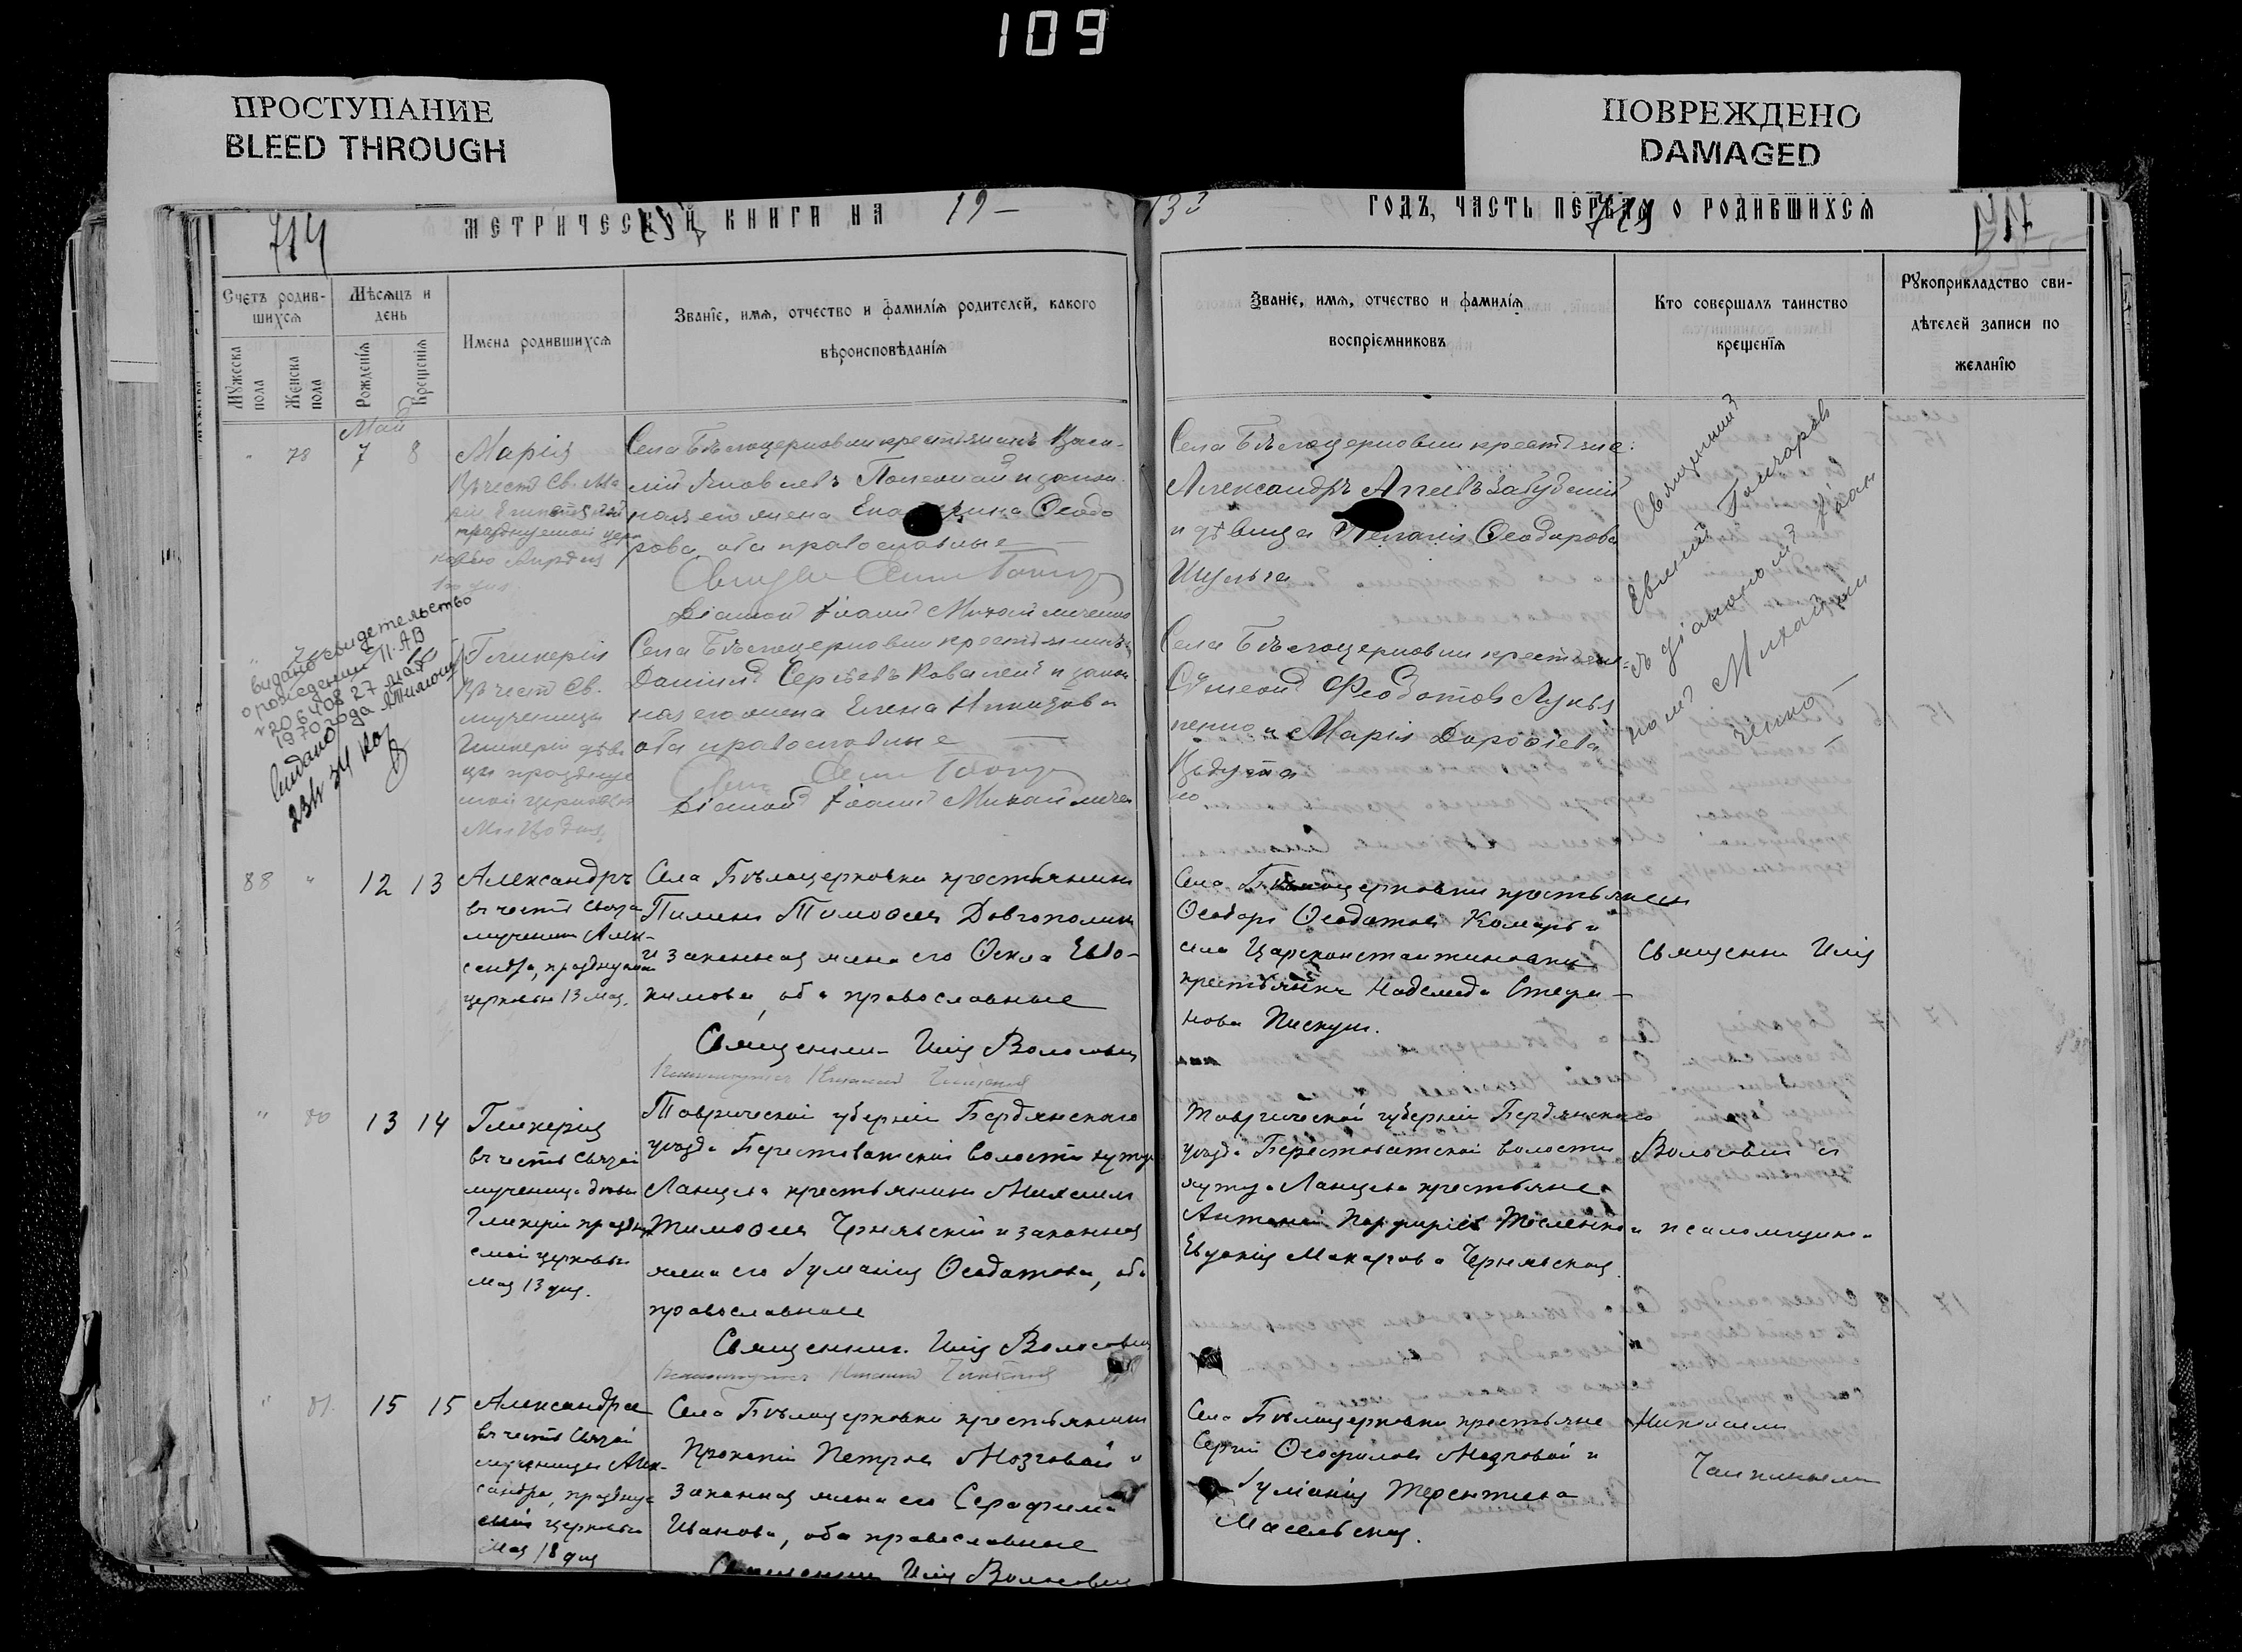 109
ПРОСТУПАНИЕ
BLEED THROUGH
ПОВРЕЖДЕНО
DAMAGED
714
МЕТРИЧЕСКОЙ КНИГИ НА 19
ГОДЪ, ЧАСТЬ ПЕРВАЯ О РОДИВШИХСЯ
Счетъ родив-
шихся
Мужеска
пола
Женска
пола
Мѣсяцъ и
день
Рожденія
Крещенія
Имена родившихся
Званіе, имя, отчество и фамилія родителей, какого
вѣроисповѣданія
Званіе, имя, отчество и фамилія
воспріемниковъ
Кто совершалъ таинство
крещенія
Рукоприкладство сви-
дѣтелей записи по
желанію
Май
78 7 8
Марія
въ честь Св. Ма
празднуемой цер
Села Бѣлоцерковки крестьянинъ Васи-
лій Яковлевъ и закон
ная его жена Екатерина Ѳеодо
рова, оба православные
Діаконъ Іоаннъ Михайличенко
Села Бѣлоцерковки крестьяне:
Александръ
и дѣвица Ѳеодорова
Шульга
Священникъ
Евѳимій Гончаровъ
съ діакономъ Іоан
номъ Михайли
ченко
видано свидетельство
о рождении II-АВ
№ 206408 27 мая
1970 года
Видано
Гликерія
въ честь Св.
мученицы
Гликеріи дѣви
цы праздuye
мой церковью
Села Бѣлоцерковки крестьянинъ
Даніилъ Сергѣевъ Ковалевъ и закон
ная его жена Елена
оба православные
Діаконъ Іоаннъ Михайличен
Села Бѣлоцерковки крестьяне:
Сѵмеонъ Ѳеодотовъ Лукья
ненко и Марія Дороѳеева
88 " 12 13
Александръ
въ честь Свята
мученика Алек-
сандра, празднуемаго
церковью 13 мая.
Села Бѣлоцерковки крестьянинъ
Пименъ Тимоѳеевъ Довгополый
и законная жена его Ѳекла Евдо-
кимова, оба православные
Священник Илія Волосовичъ
Села Бѣлоцерковки крестьянинъ
Ѳеодоръ Ѳеодотовъ Комаръ и
села Царсконстантиновки
крестьянка Надежда Степа-
нова Пискунъ.
Священник Илія
" 80 13 14
Гликерія
въ честь Святой
мученицы дѣвы
Гликеріи праздну
емой церковью
мая 13 дня.
Таврической губерніи Бердянскаго
уѣзда Берестоватской волости хутора
Ланцева крестьянинъ Максимъ
Тимоѳеевъ Чернявскій и законная
жена его Іуліанія Ѳеодотова, оба
православные
Священник Илія Волосовичъ
Таврической губерніи Бердянскаго
уѣзда Берестоватской волости
хутора Ланцева крестьяне
Антоній Порфиріевъ Тесленко и
Евдокія Макарова Чернявская.
Волосовичъ съ
псаломщико
" 81 15 15
Александра
въ честь Святой
мученицы Алек-
сандры, праздuye
мой церковью
мая 18 дня
Села Бѣлоцерковки крестьянинъ
Прокопій Петровъ Мозговой и
законная жена его Серафима
Иванова, оба православные
Священник Илія Волосовичъ
Села Бѣлоцерковки крестьяне
Сергій Ѳеофиловъ Мозговой и
Іуліанія Терентьева